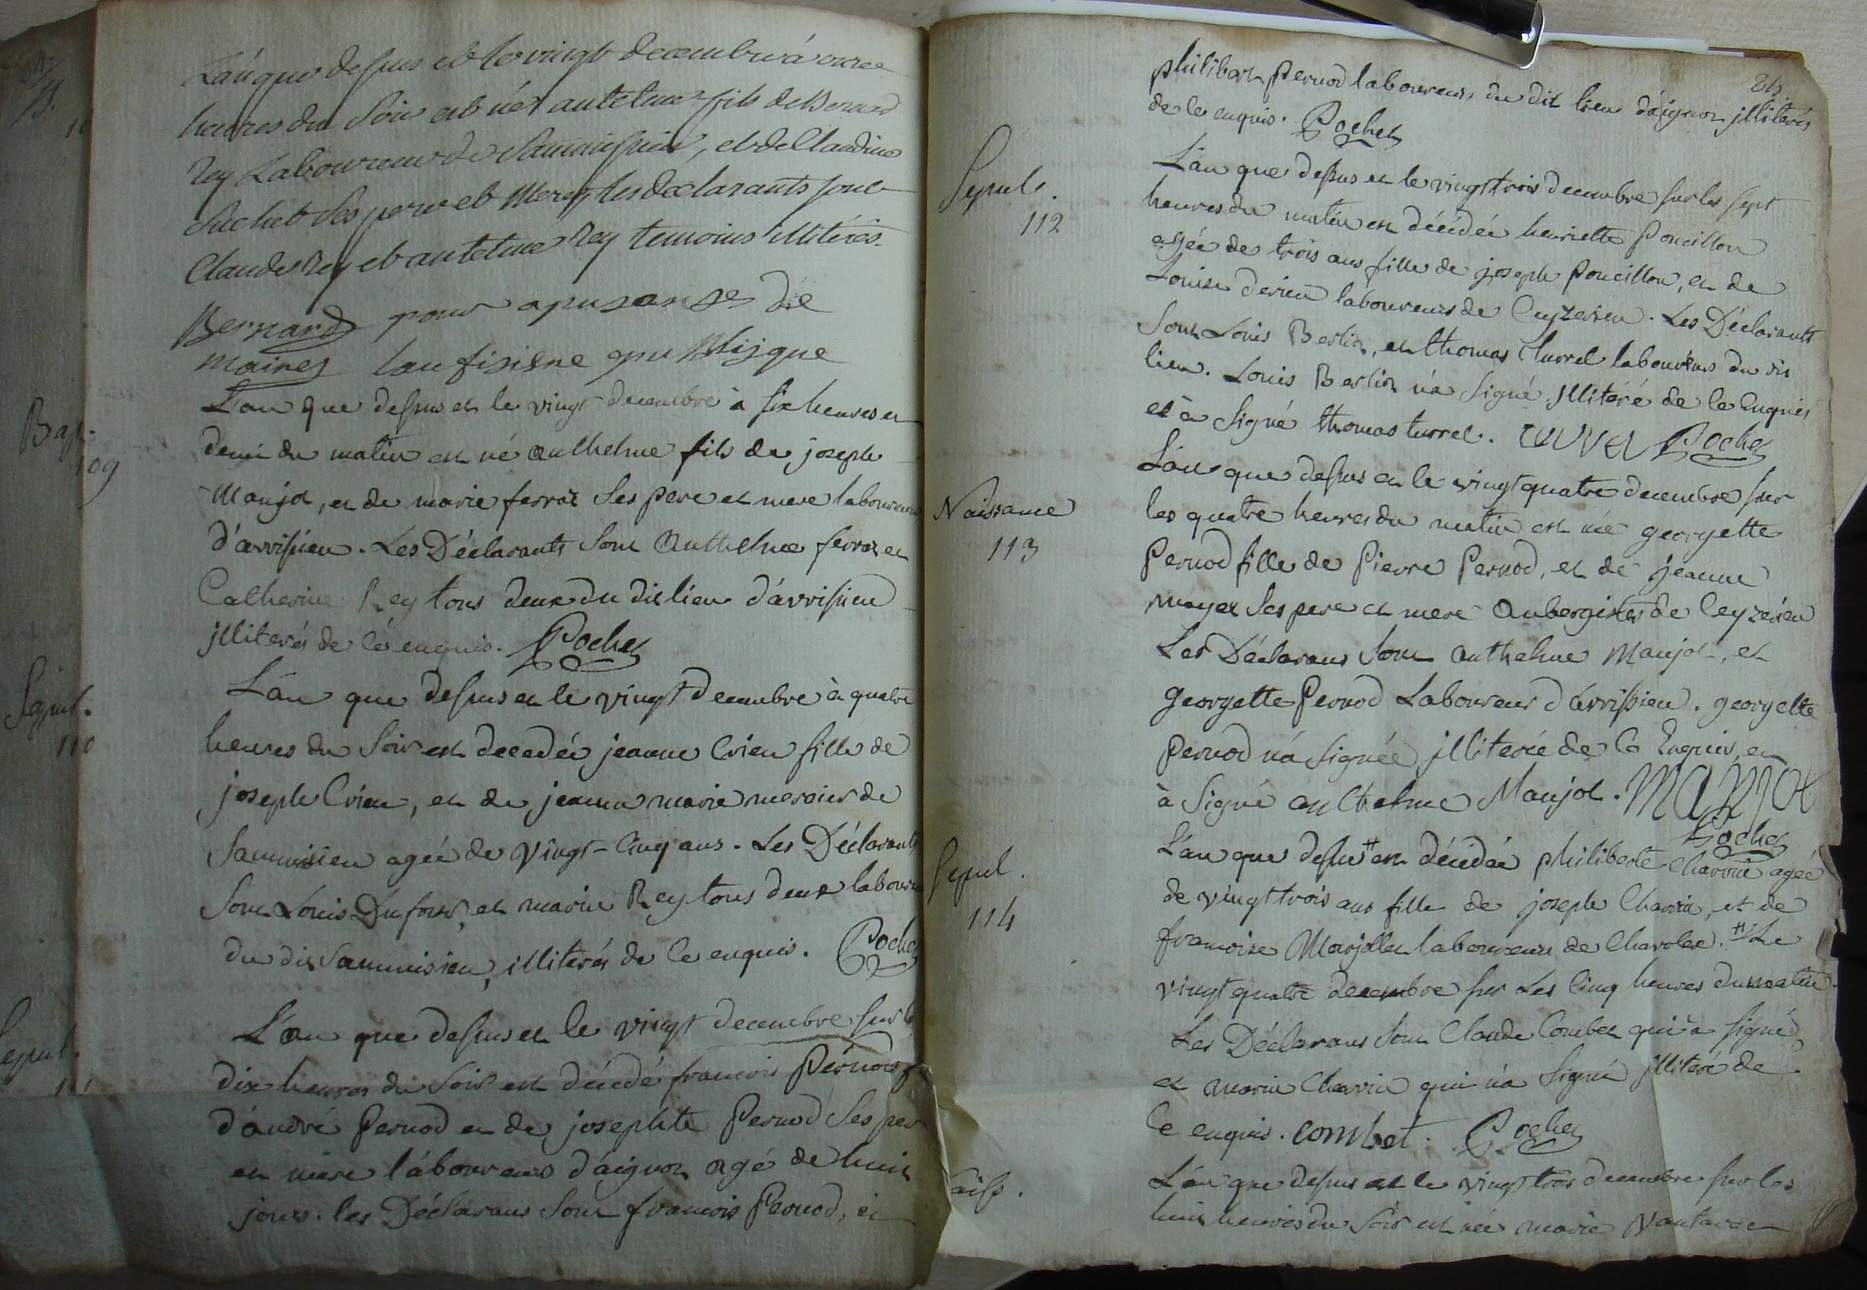 L'an que dessus et le vingt decembre à onze
heures du Soir est né antelme fils de Bernard
Rey Laboureur de , et de Claudine
Suchet Ses pere et Mere, les declarants sont
Claude Rey et antelme Rey temoins illiterés
Bernard pour
maires
Bap.
109
L'an que dessus et le vingt decembre à six heures et
demi du matin est né anthelme fils de joseph
Maujot, et de marie ferroz Ses pere et mere laboureurs
d'avrissieu. Les Déclarants Sont anthelme ferroz et
Catherine Rey tous deux du dit lieu d'avrissieu
jlliterés de ce enquis. Pochet
Sepul.
110
L'an que dessus et le vingt decembre à quatre
heures du Soir est decedée jeanne Crieu fille de
joseph Crieu, et de jeanne marie mercier de
agée de vingt-Cinq ans. Les Déclarants
Sont Louis Dufour, et marie Rey tous deux laboureurs
du dit , illiterés de Ce enquis. Pochet
Sepul.
111
L'an que dessus et le vingt decembre sur les
dix heures du Soir est décédé francois Pernod f
d'andré Pernod et de josephte Pernod Ses pere
et mere laboureurs d'aignoz agé de huit
jours. les Déclarans Sont francois Pernod, et
philibert Pernod laboureurs du dit lieu d'aignoz jlliterés
de ce enquis. Pochet
Sepul.
112
L'an que dessus et le vingt trois decembre sur les sept
heures du matin est décédée henriette Poncillon
agée de trois ans fille de joseph Poncillon, et de
Louise derieu laboureurs de Ceyzerieu. Les Déclarants
Sont Louis Berlioz, et thomas turrel laboureurs du dit
lieu. Louis Berlioz n'a Signé jllitéré de ce Enquis
et à Signé thomas turrel. Pochet
Naissance
113
L'an que dessus et le vingt quatre decembre sur
les quatre heures du matin est née georgette
Pernod fille de Pierre Pernod, et de jeanne
moyet Ses pere et mere aubergistes de Ceyzerieu
Les Déclarans Sont anthelme Maujot, et
georgette Pernod Laboureurs d'avrissieu. georgette
Pernod n'a Signée jlliterée de Ce Enquis, et
à Signé anthelme Maujot. MANJOT
Pochet
Sepul.
114
L'an que dessus # est décédée philiberte Charvin agée
de vingt trois ans fille de joseph Charvin, et de
francoise Marjollet laboureurs de Chavolee. # Le
vingt quatre decembre sur Les Cinq heures du matin.
Les Déclarans Sont Claude Combet qui a signé
et marie Charvin qui n'a Signé jlliteré de
Ce enquis. combet. Pochet
Naiss.
L'an que dessus et le vingt trois decembre sur les
huit heures du Soir est née marie